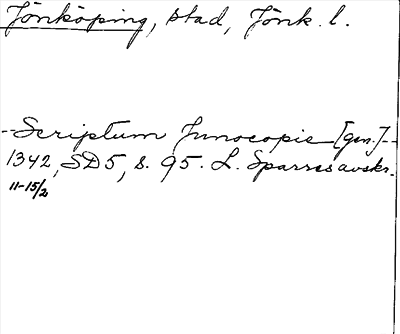 Jönköping, stad, Jönk. l.
--Scriptum Junocopie [gen.]--
1342, SD5, s. 95. L. Sparres avskr.
11-15/2